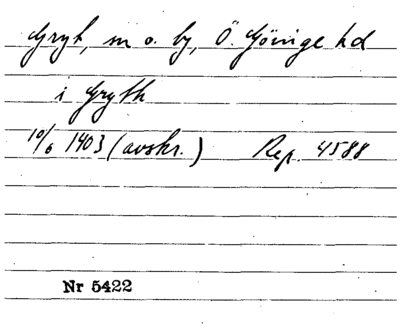 Gryt, sn o. by, Ö. Göinge hd
i Gryth
10/6 1403 (avskr.) Rep. 4588
Nr 5422